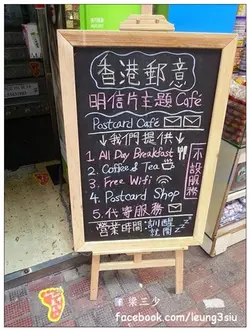 香港郵意
明信片主題Café
Postcard Café
↓我們提供↓
1 All Day Breakfast
2. Coffee & Tea
3. Free Wifi
4. Postcard Shop
5.代寄服務
不設服務
營業時間:訓醒
就開
梁三少
facebook.com/leung3siu